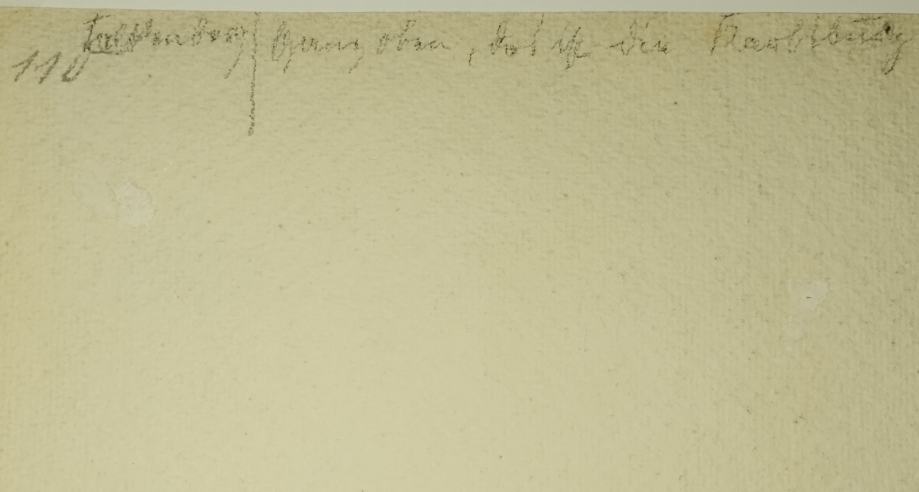 110 Falkenberg | Ganz oben, das ist die Raubburg